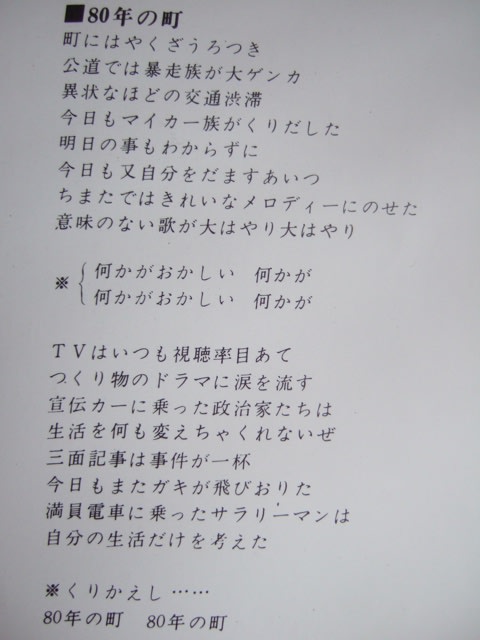 ■80年の町
町にはやくざうろつき
公道では暴走族が大ゲンカ
異状なほどの交通渋滞
今日もマイカー族がくりだした
明日の事もわからずに
今日も又自分をだますあいつ
ちまたではきれいなメロディーにのせた
意味のない歌が大はやり大はやり
※{何かがおかしい 何かが
何かがおかしい 何かが
TVはいつも視聴率目あて
つくり物のドラマに涙を流す
宣伝カーに乗った政治家たちは
生活を何も変えちゃくれないぜ
三面記事は事件が一杯
今日もまたガキが飛びおりた
満員電車に乗ったサラリーマンは
自分の生活だけを考えた
※くりかえし……
80年の町 80年の町